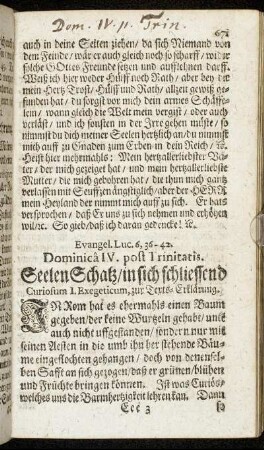 Dom. IV. p. Trin.
671
auch in deine Seiten ziehen / da sich Niemand von
dem Feinde / wär er auch gleich noch so scharff / wider
solche Gottes Freunde setzen und aufflehnen darff.
Weiß ich hier weder Hülff noch Rath / aber bey dir
mein Hertz Trost / Hülff und Rath / allzeit gewiß ge-
funden hat / du sorgst vor mich dein armes Schäffe-
lein / wann gleich die Welt mein vergißt / oder auch
verläst / und ich sonsten in der Irre gehen müste / so
nimmst du dich meiner Seelen hertzlich an / du nimmst
mich auff zu Gnaden zum Erben in dein Reich / ꝛc.
Heist hier mehrmahls: Mein hertzallerliebster Va-
ter / der mich gezeiget hat / und man hertzallerliebste
Mutter / die mich gebohren hat / die thun mich gantz
verlassen mit Seufftzen ängstiglich / aber der HERR
mein Heyland der nimmt mich auff zu sich. Er hats
versprochen / daß Er uns zu sich nehmen und erhöhen
wil / ꝛc. So gieb / daß ich daran gedencke! ꝛc.
Evangel. Luc. 6, 36-42.
Dominicâ IV. post Trinitatis.
Seelen Schatz / in sich schliessend
Curiosum I. Exegeticum, zur Texts-Erklärung.
In Rom hat es ehermahls einen Baum
gegeben / der keine Wurtzeln gehabt / und
auch nicht uffgestanden / sondern nur mit
seinen Aesten in die umb ihn her stehende Bäu-
me eingeflochten gehangen / doch von denensel-
ben Safft an sich gezogen / daß er grünen / blühen
und Früchte bringen können. Ist was Curiös,
welches uns die Barmhertzigkeit lehren kan. Dann
Ccc 3
so